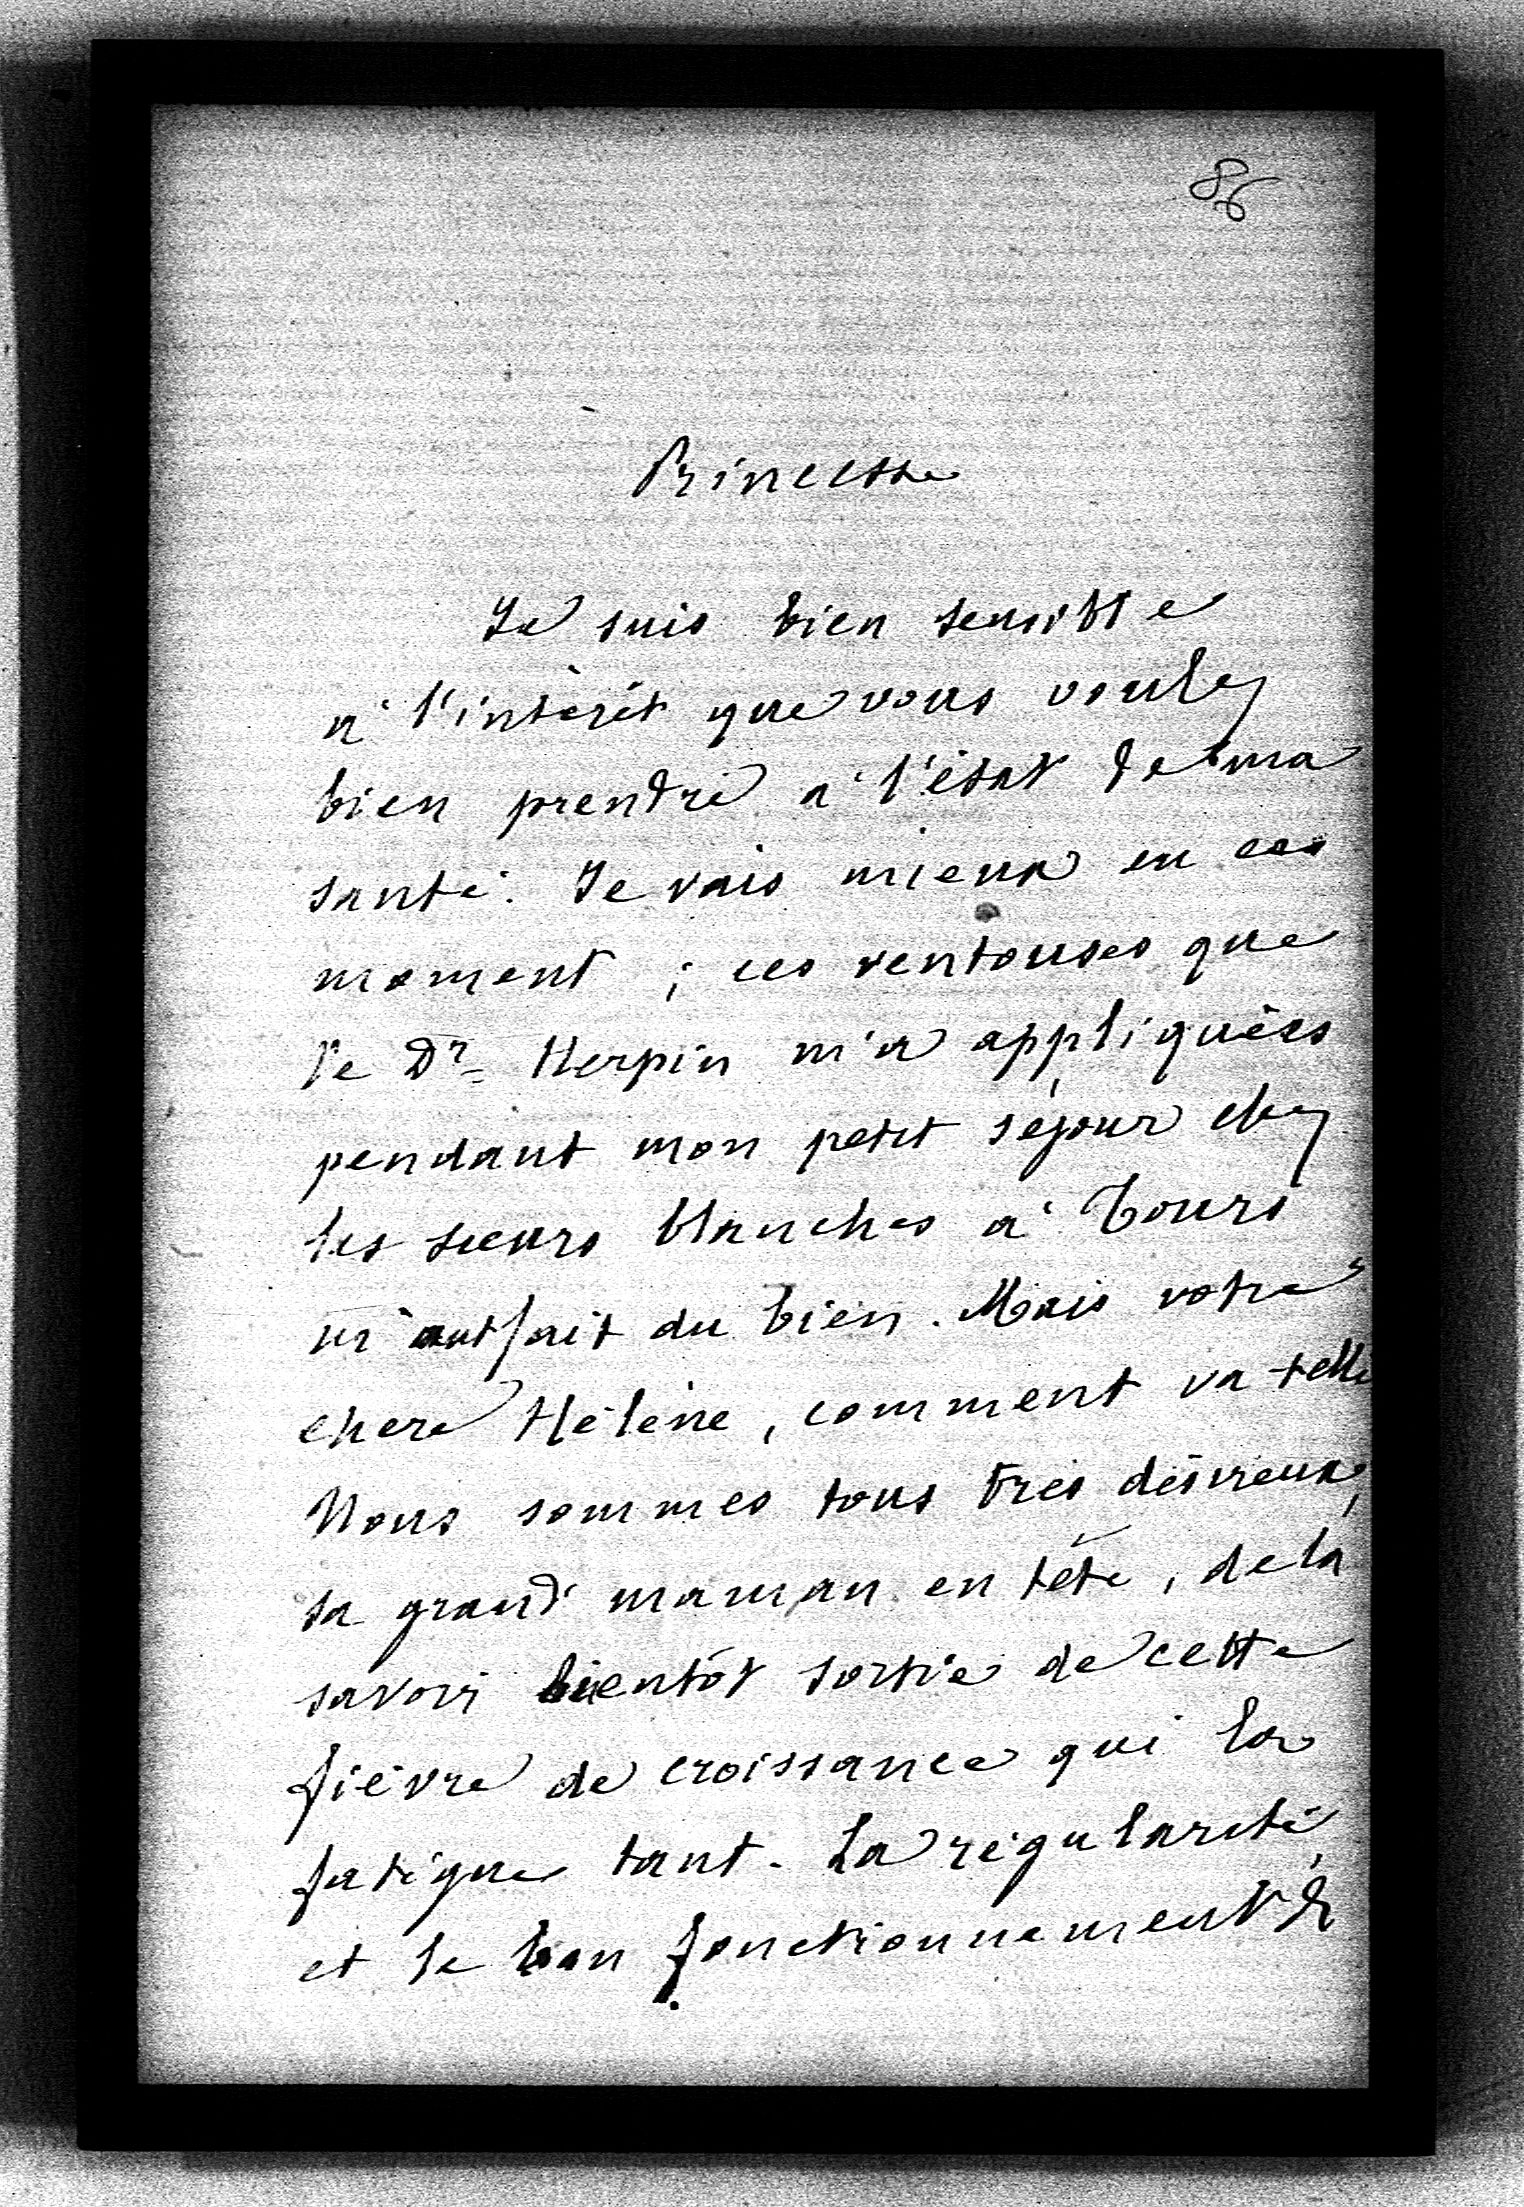 86
Princesse
Je suis bien sensible
à l'intérêt que vous voulez
bien prendre à l'état de ma
santé. Je vais mieux en ces
moment ; ces ventouses que
le Dr Herpin m'a appliquées
pendant mon petit séjour chez
les sœurs blanches à Tours
m'ont fait du bien. Mais votre
chere Hélène, comment va telle
Nous sommes tous très désireux,
sa grand' maman en tête, de la
savoir bientôt sortie de cette
fièvre de croissance qui la
fatigue tant. La régularité
et le bon fonctionnement de